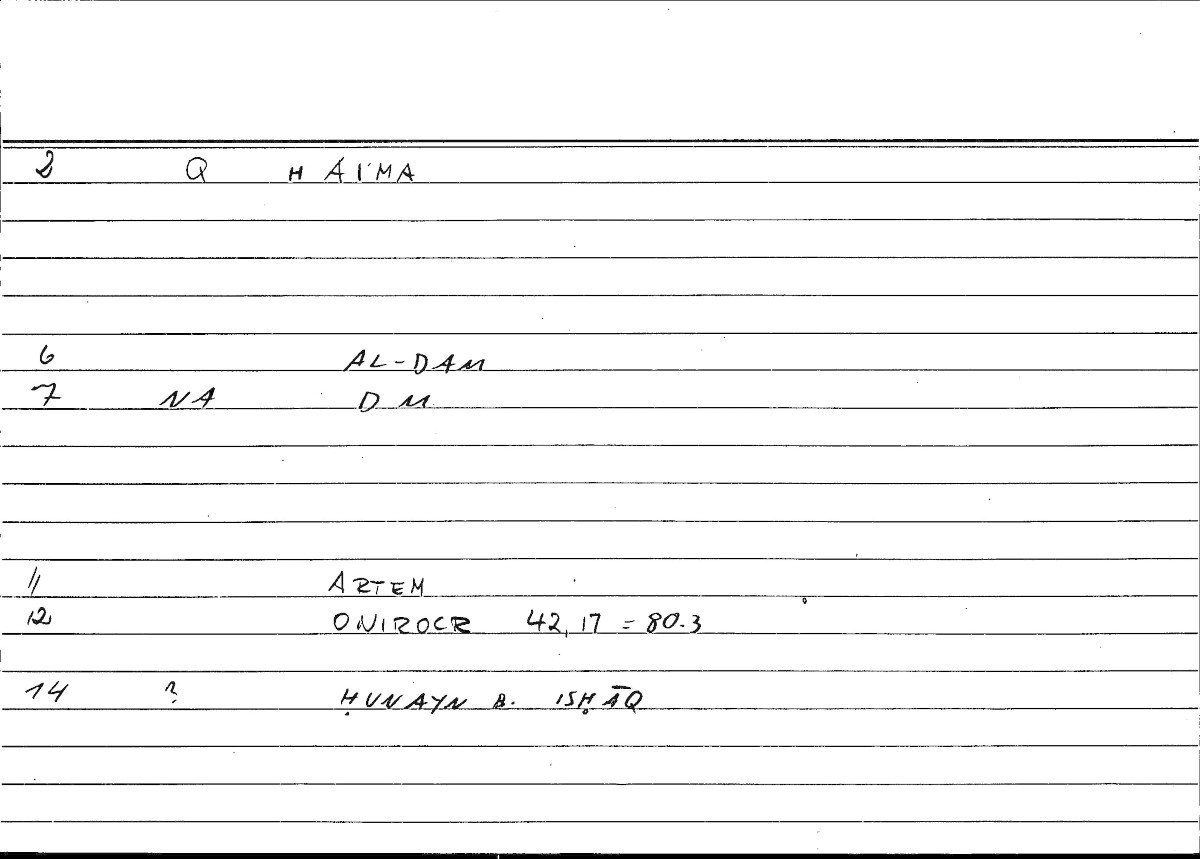 2 Q H ÁIMA
6 AL-DAM
7 NA DM
11 ARTEM
12 ONIROCR 42,17 = 80.3
14 ? ḤUNAYN B. ISḤĀQ